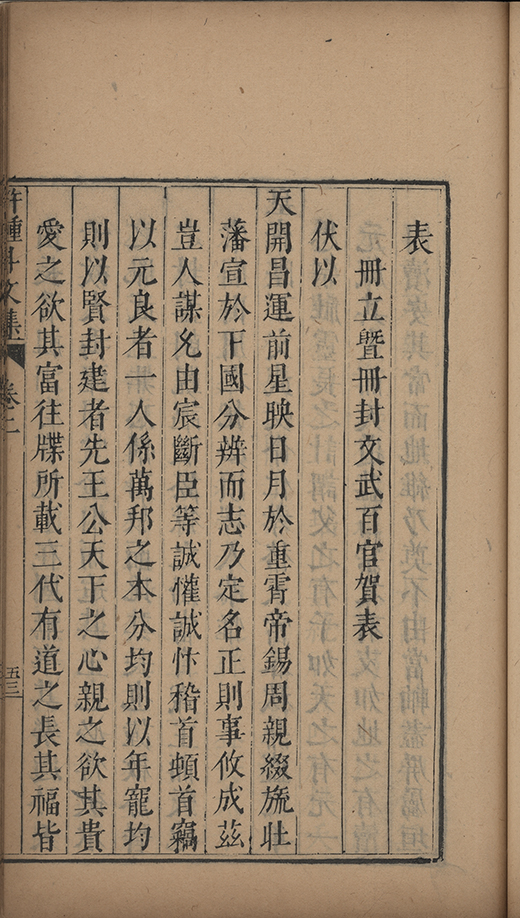 表
冊立曁冊封文武百官賀表
伏以
天開昌運前星映日月於重霄帝錫周親綴旒壯
藩宣於下國分辨而志乃定名正則事攸成茲
豈人謀允由宸斷臣等誠懽誠忭稽首頓首竊
以元良者一人係萬邦之本分均則以年寵均
則以賢封建者先王公天下之心親之欲其貴
愛之欲其富往牒所載三代有道之長其福皆
許鍾斗文集 卷二 五三